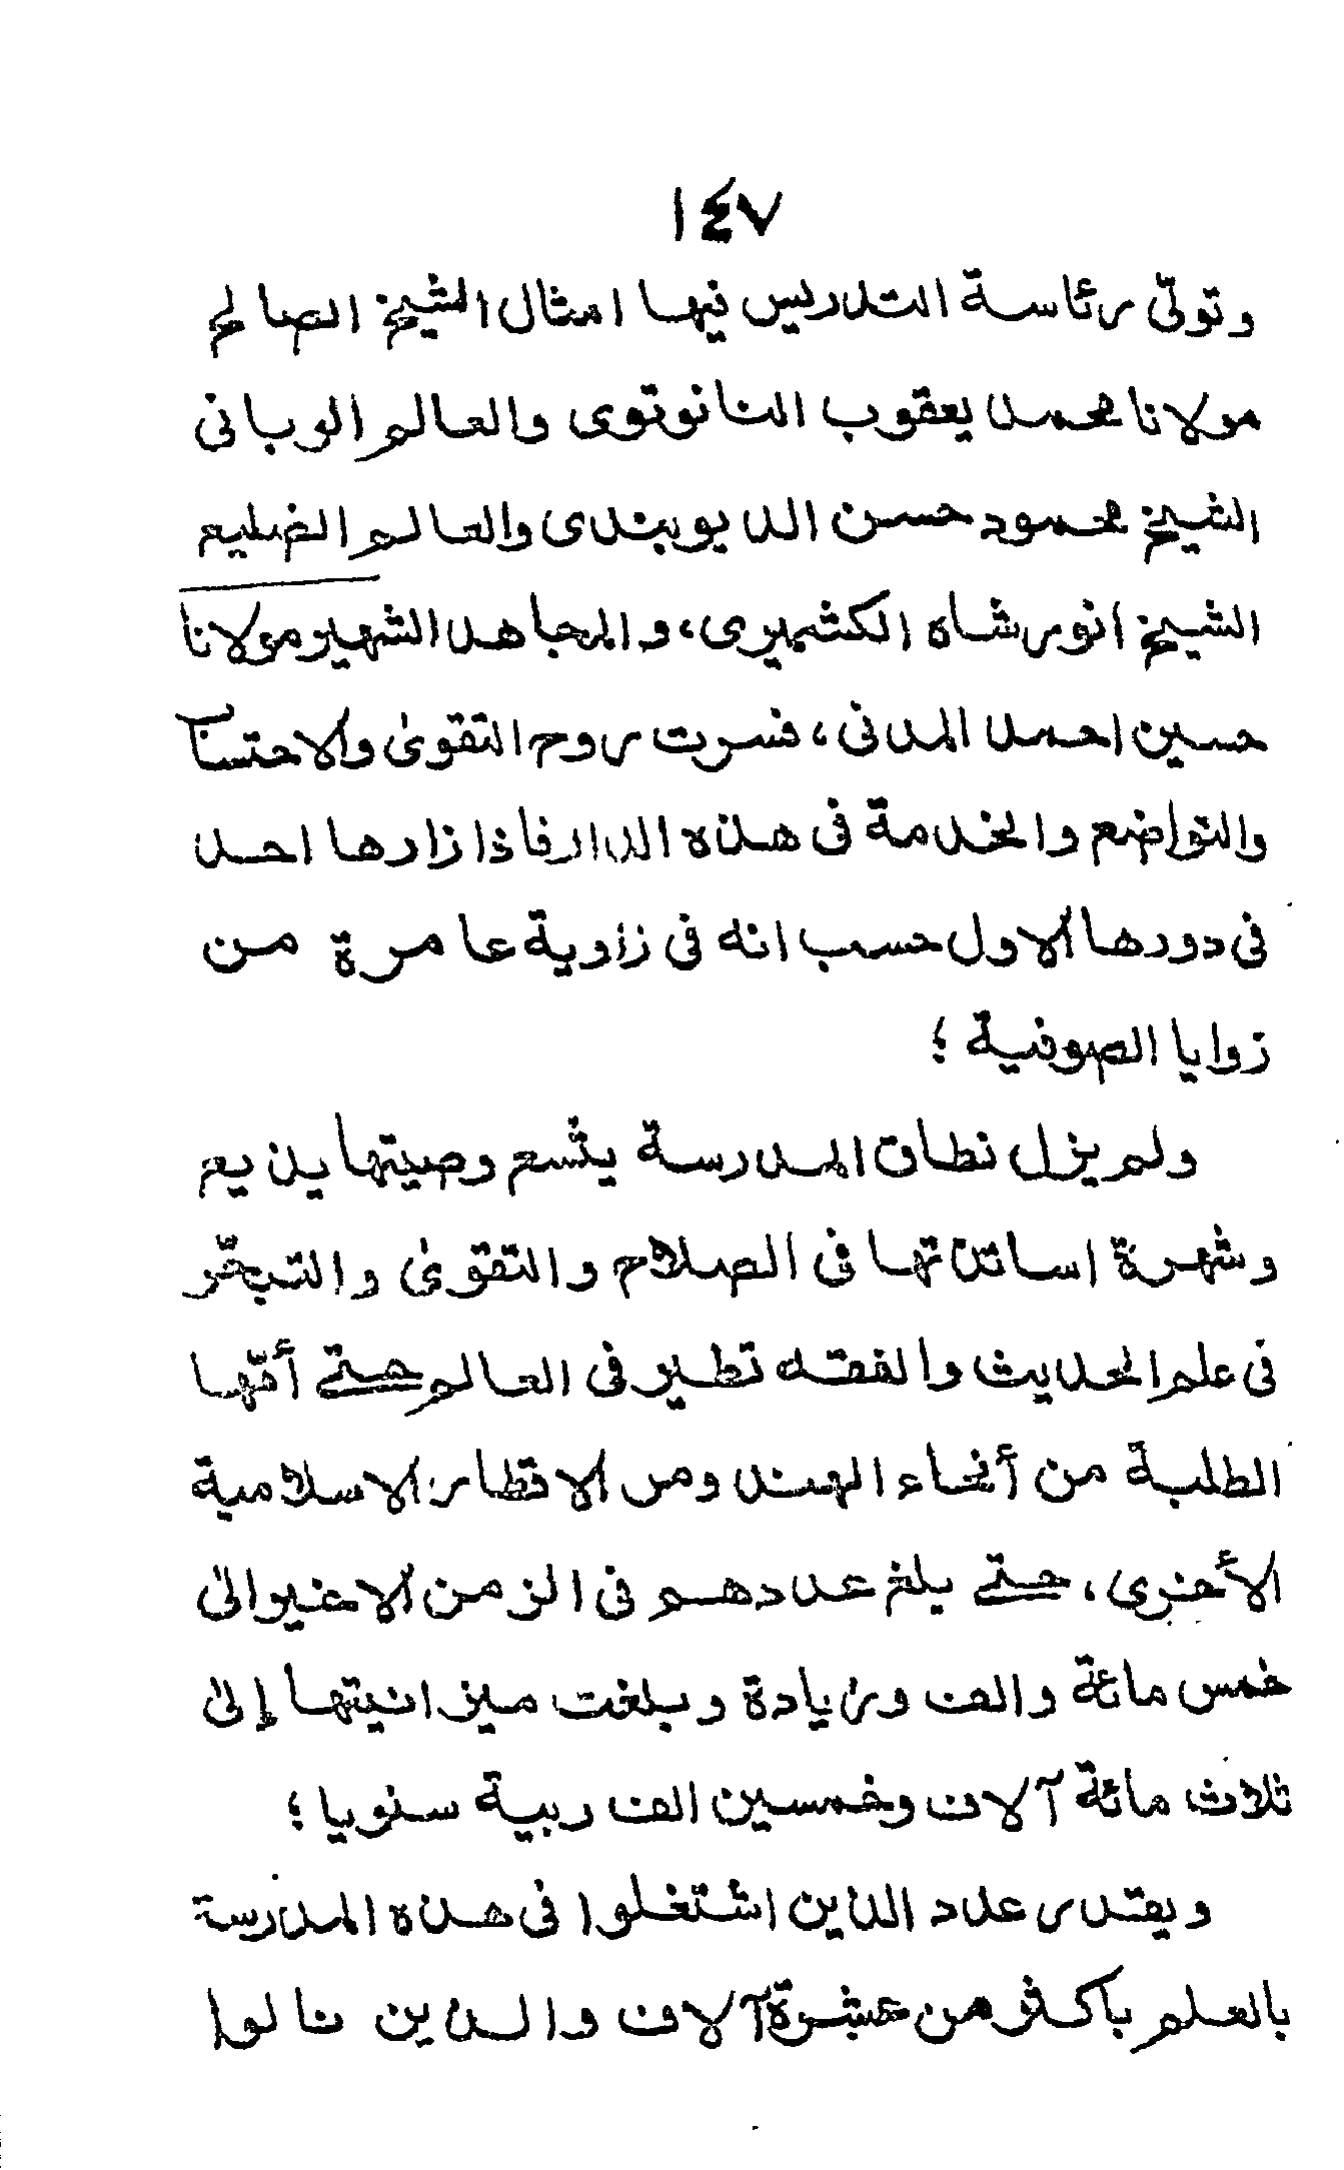 ١٤٧
وتولّى رئاسة التدريس فيها امثال الشيخ الصالح
مولانا محمد يعقوب النانوتوى والعالم الربانى
الشيخ محمود حسن الديوبندى والعالم الضليع
الشيخ انور شاه الكشميرى، والمجاهد الشهير مولانا
حسين احمد المدنى، فسرت روح التقوىٰ والاحتساب
والتواضع والخدمة فى هذه الدار فاذا زارها احد
فى دورها الاول حسب انه فى زاوية عامرة من
زوايا الصوفية ؛
ولم يزل نطاق المدرسة يتسع وصيتها يذيع
وشهرة اساتذتها فى الصلاح والتقوىٰ والتبحّر
فى علم الحديث والفقه تطير فى العالم حتے أمّها
الطلبة من أنحاء الهند ومن الاقطار الاسلامية
الأخرى، حتے بلغ عددهم فى الزمن الاخير الىٰ
خمس مائة والف وزيادة وبلغت ميزانيتها إلىٰ
ثلاث مائة آلاف وخمسين الف ربية سنويا ؛
ويقدر عدد الذين اشتغلوا فى هذه المدرسة
بالعلم بأكثر من عشرة آلاف والذين نالوا